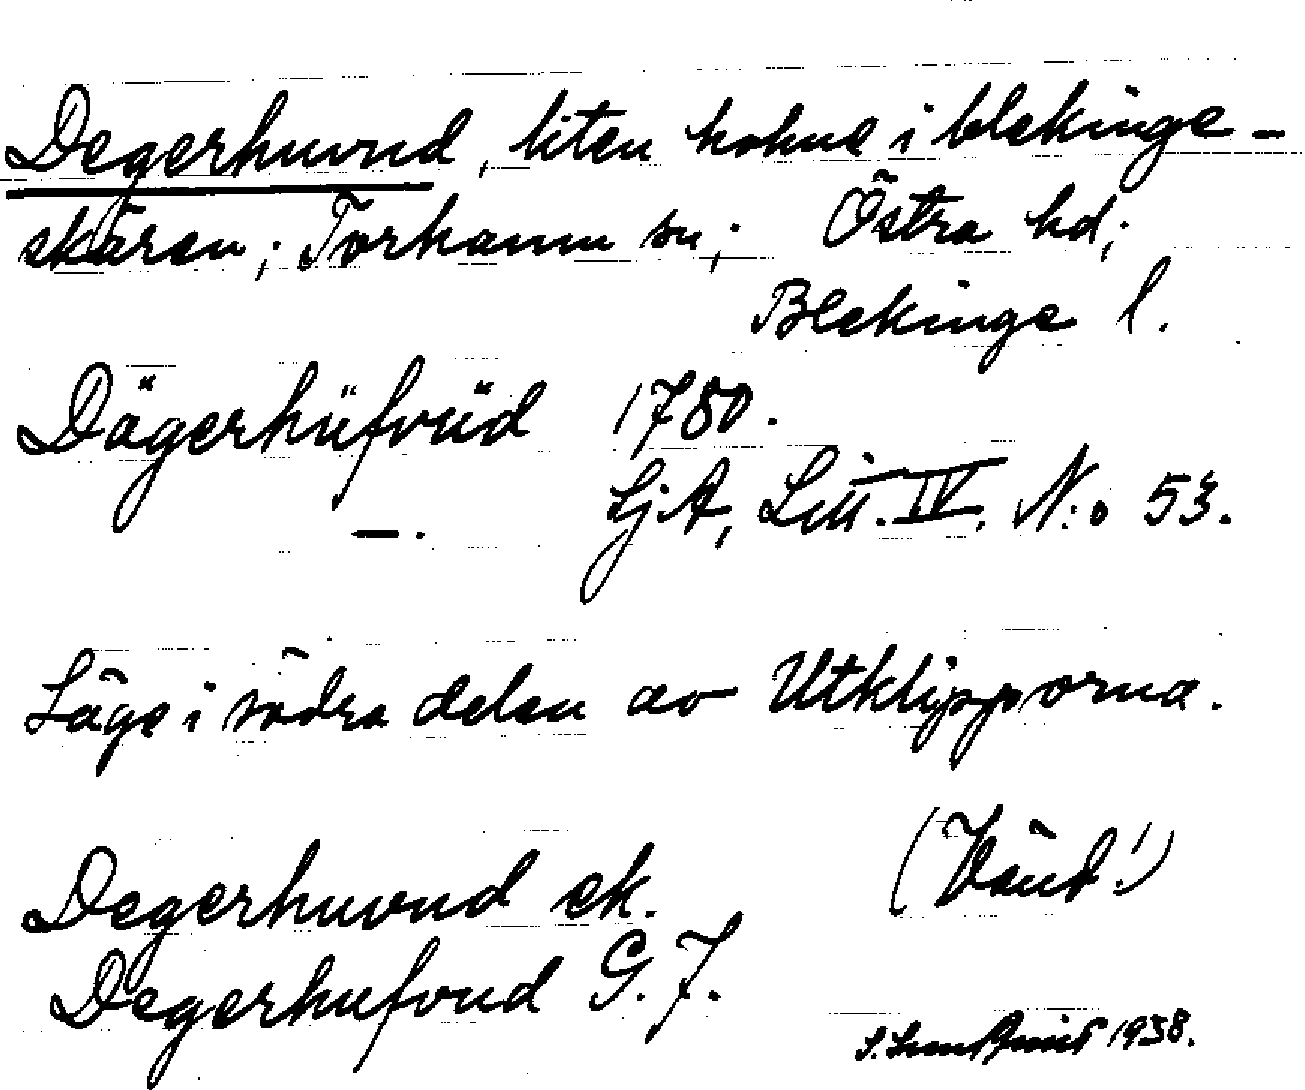 Degerhuvud, liten holme i blekinge-
skären; Torhamn sn; Östra hd;
Blekinge l.
Dägerhüfvüd 1780.
LjA, Litt. IV. N:o 53.
—.
Läge i södra delen av Utklipporna.
(Vänd!)
Degerhuvud ek.
Degerhufvud G. J.
1938.